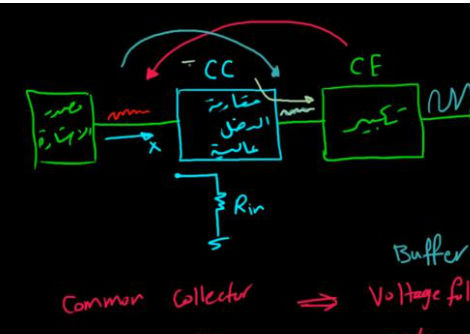 CC
CE
مصدر
الاشارة
مقاومة
الدخل
عالية
تكبير
x
Rin
Buffer
Common Collector ⇒ Voltage fol